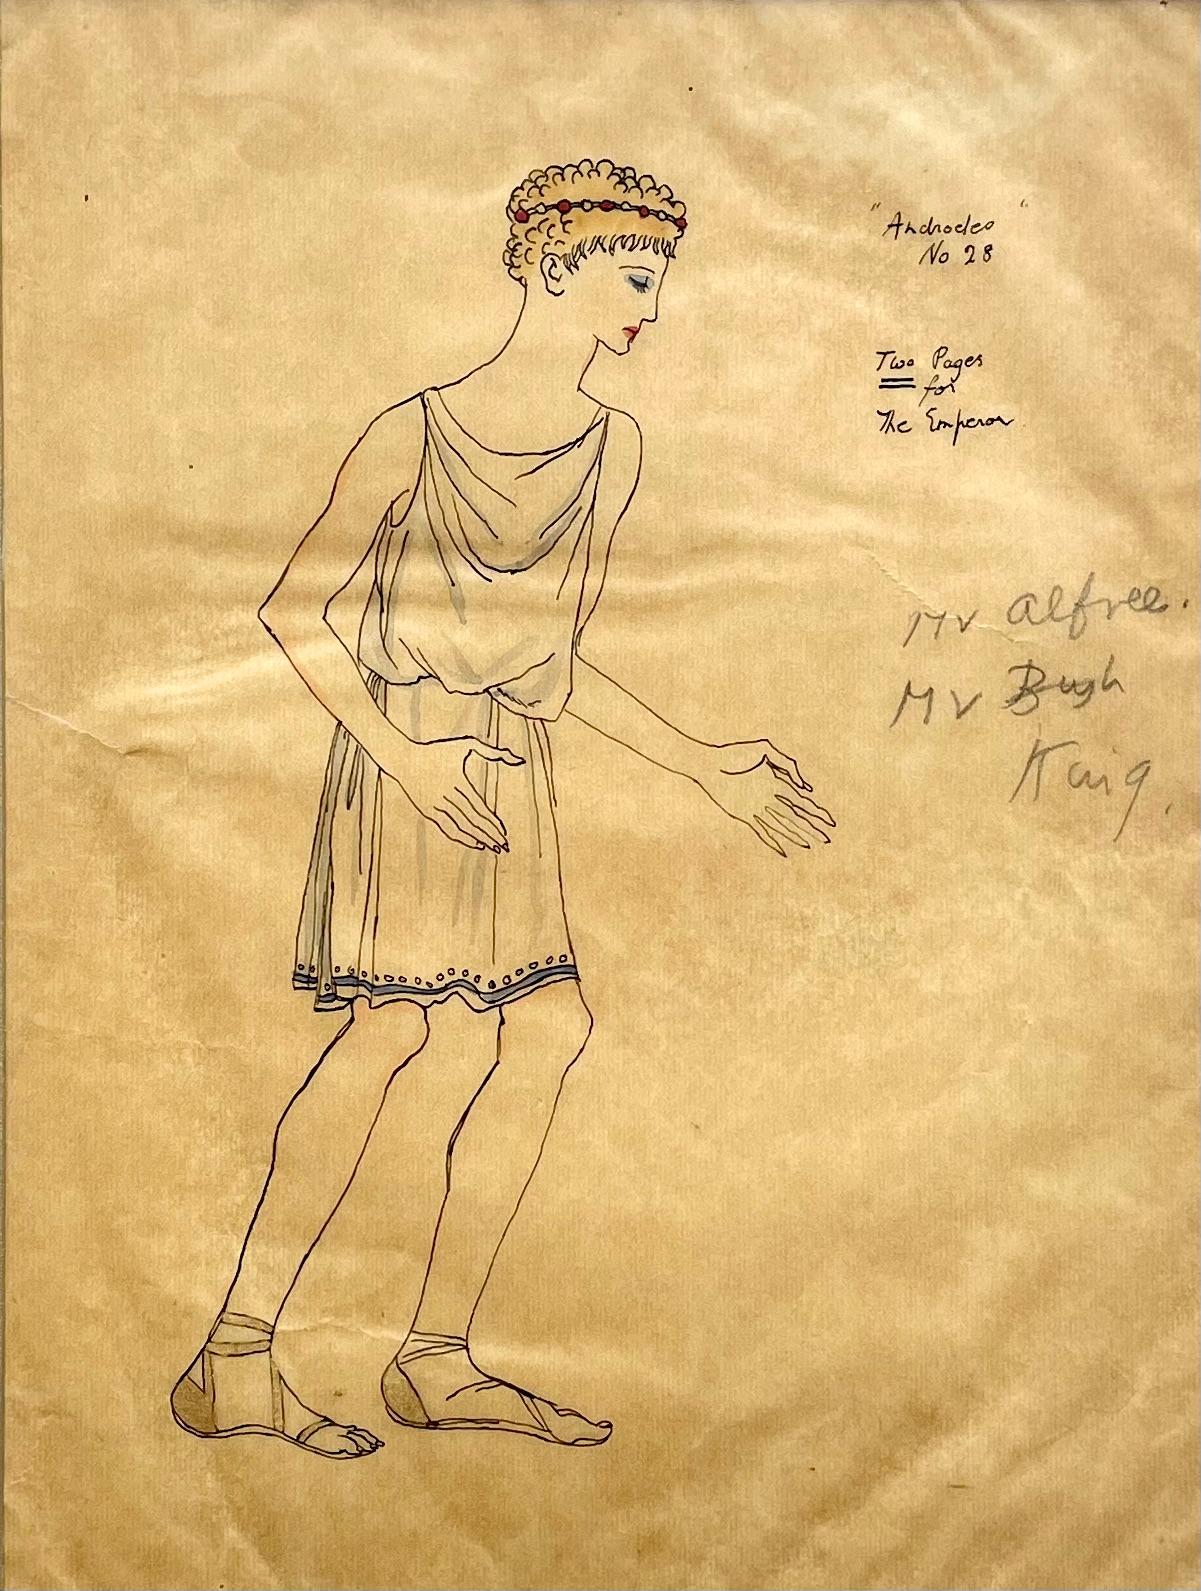 "Androcles"
No 28
Two Pages
for
The Emperor
Mr Alfree.
Mr Bush
King.